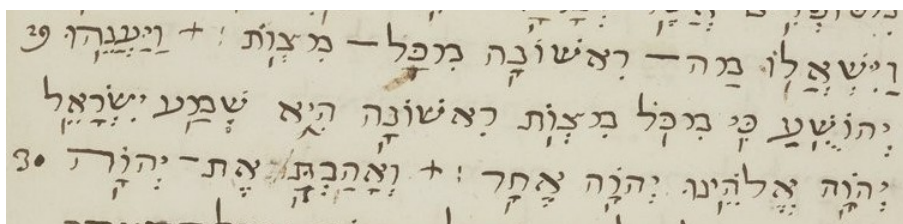 וַיִּשְׁאֲלוֹ מַה— רִאשׁוֹנָה מִכָּל— מִצְוֹת : + וַיַּעֲנֵהוּ 29
יְהוֹשֻׁעַ כִּי מִכֹּל מִצְוֹת רִאשׁוֹנָה הִיא שְׁמַע יִשְׂרָאֵל
יְהוָֹה אֱלֹהֵינוּ יְהוָֹה אֶחָד : + וְאָהַבְתָּ אֶת— יְהוָֹה 30